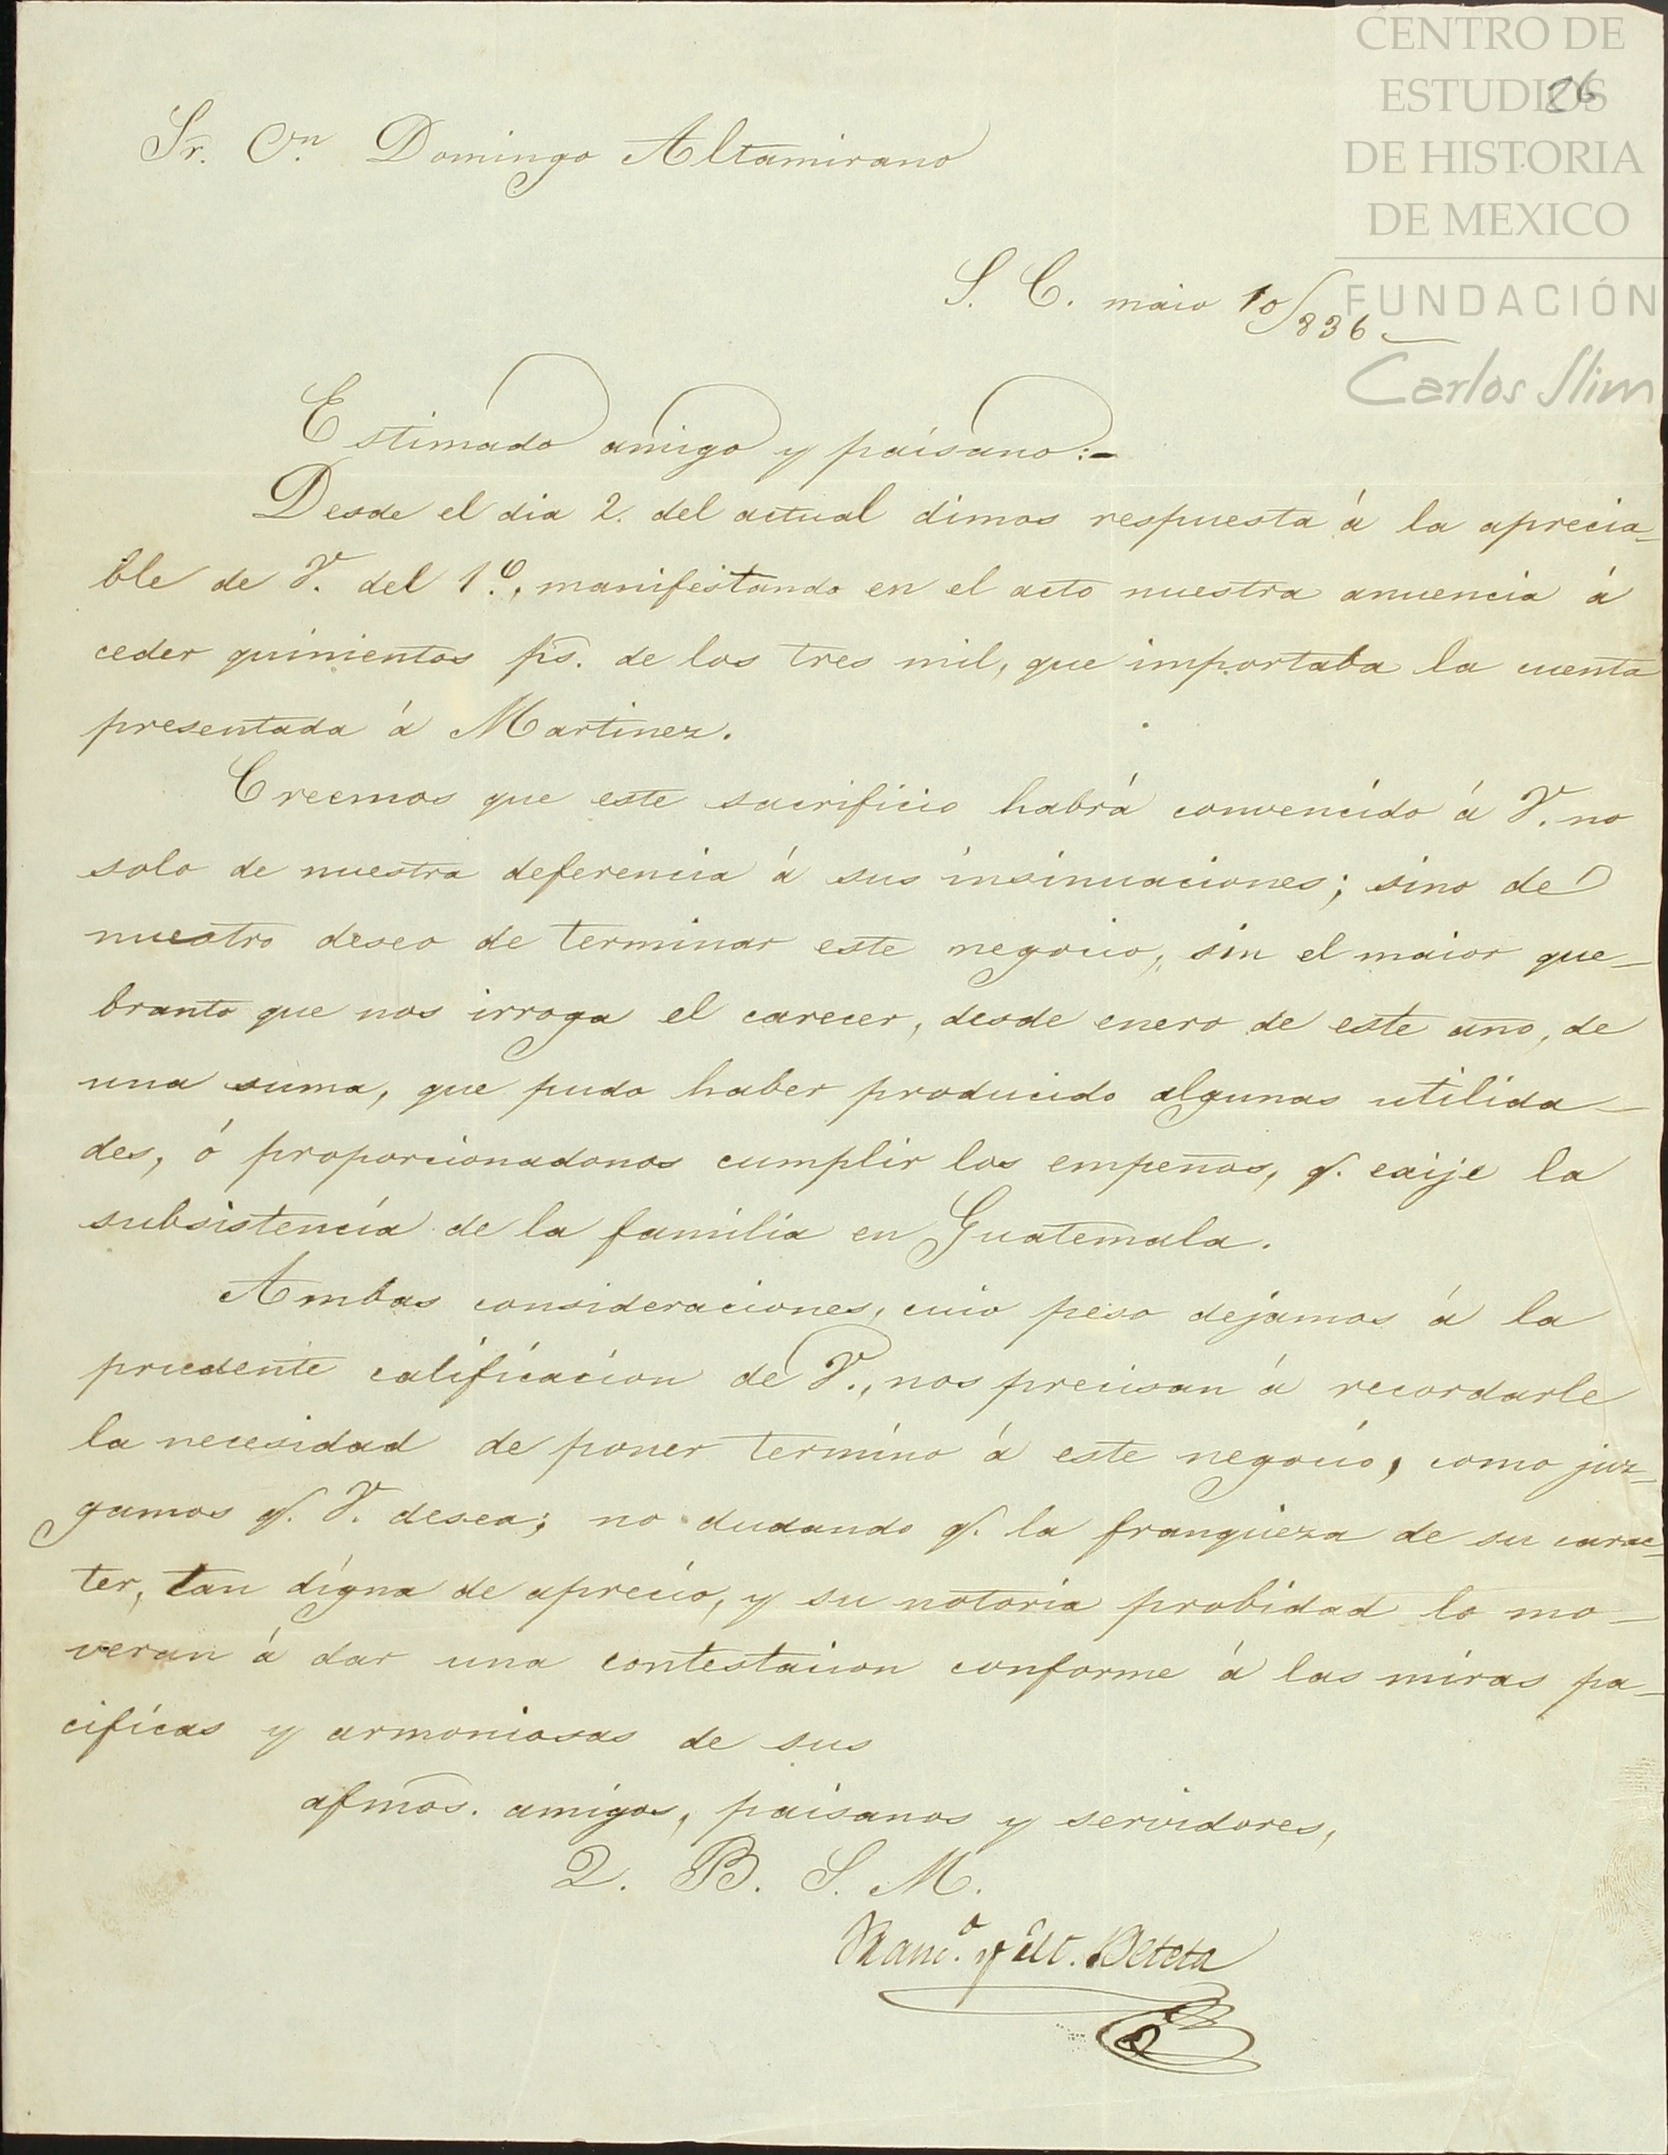 CENTRO DE
ESTUDIOS
DE HISTORIA
DE MEXICO
FUNDACIÓN
Carlos Slim
26
Sr. Cn. Domingo Altamirano
S. C. maio 10/836
Estimado amigo y paisano:-
Desde el dia 2. del actual dimos respuesta á la aprecia-
ble de V. del 1.º, manifestando en el acto nuestra anuencia á
ceder quinientos ps. de los tres mil, que importaba la cuenta
presentada á Martinez.
Creemos que este sacrificio habrá convencido á V. no
solo de nuestra deferencia á sus insinuaciones; sino de
nuestro deseo de terminar este negocio, sin el maior que-
branto que nos irroga el carecer, desde enero de este año, de
una suma, que pudo haber producido algunas utilida-
des, ó proporcionadonos cumplir los empeños, q. exije la
subsistencia de la familia en Guatemala.
Ambas consideraciones, cuio peso dejamos á la
prudente calificacion de V., nos precisan á recordarle
la necesidad de poner termino á este negocio, como juz-
gamos q. V. desea; no dudando q. la franqueza de su carac-
ter, tan digna de aprecio, y su notoria probidad lo mo-
veran á dar una contestacion conforme á las miras pa-
cificas y armoniosas de sus
afmos. amigos, paisanos y servidores,
Q. B. S. M.
Beteta